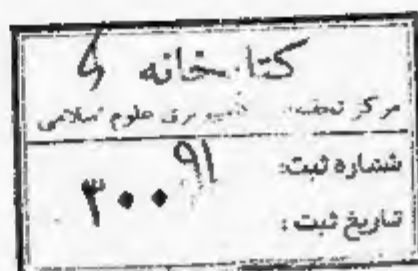 کتابخانه
مرکز تحقیقات کامپیوتری علوم اسلامی
شماره ثبت:
۳۰۰
تاریخ ثبت: